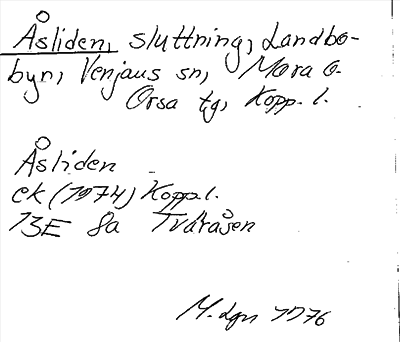 Åsliden, sluttning, Landbo-
byn, Venjans sn, Mora o.
Orsa tg, Kopp. l.
Åsliden
ek (1974) Kopp.l.
13E 8a Tvåråsen
M.dgn 1976